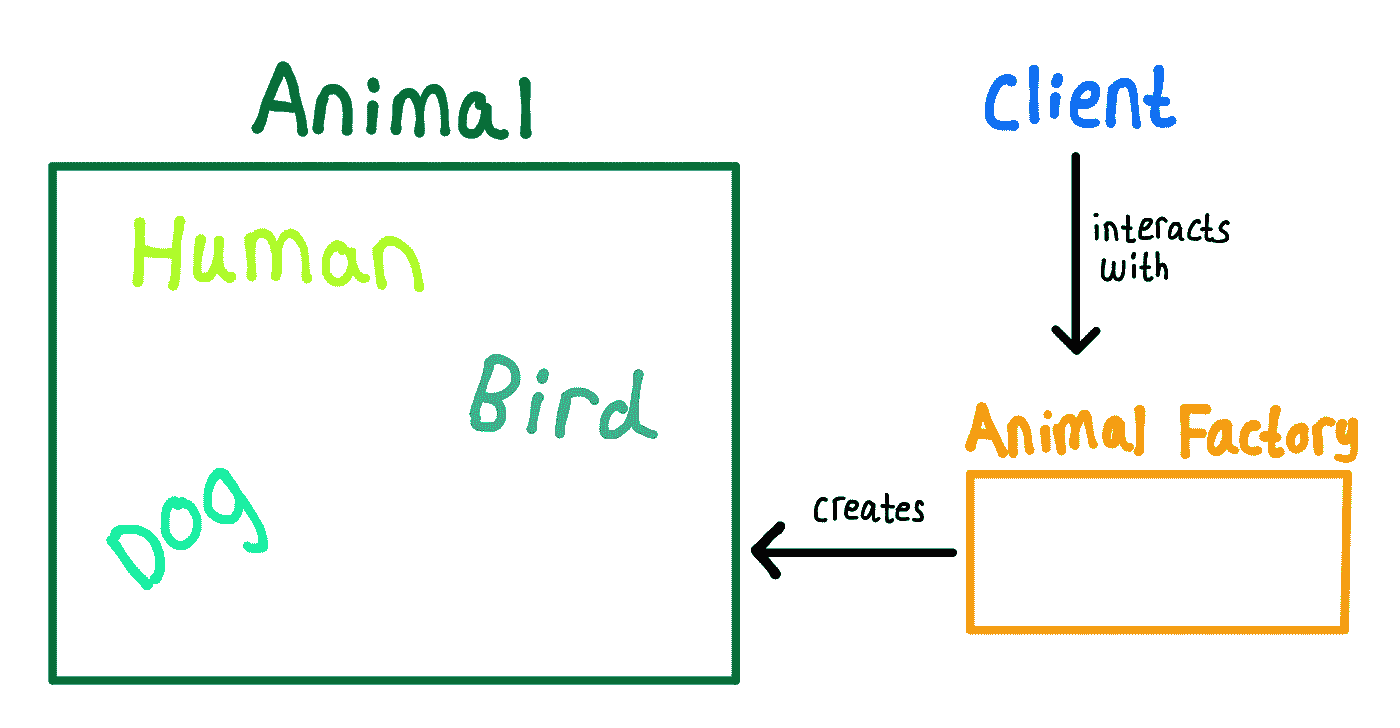 Animal
Human
Bird
Dog
Client
interacts
with
Animal Factory
creates